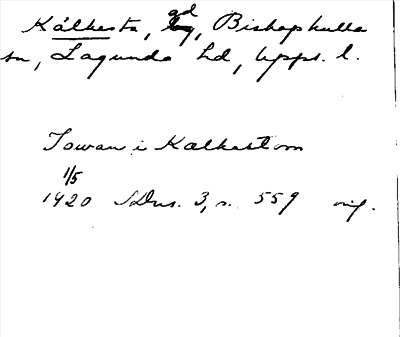 Kålkesta, gd, Biskopskulla
sn, Lagunda hd, Upps. l.
Iowan i Kalkestom
1/5
1420 SDns. 3, s. 559 orig.